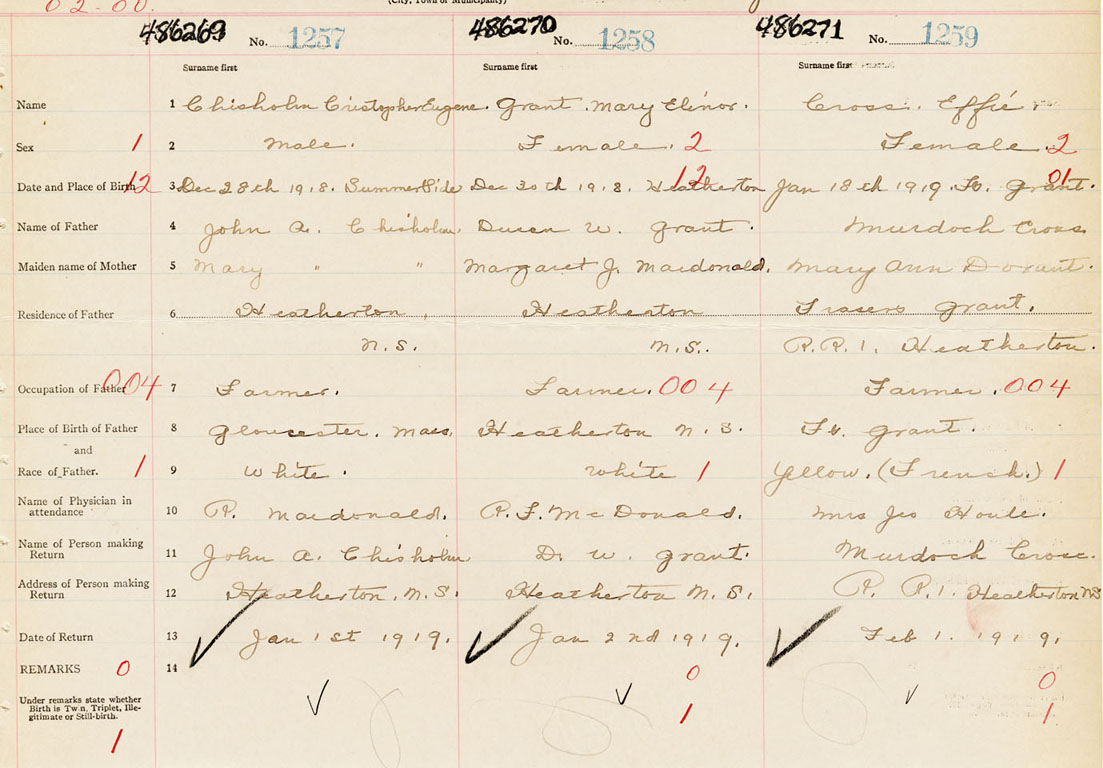 02-00.
(City, Town or Municipality)
486269 No. 1257 486270 No. 1258 486271 No. 1259
Surname first Surname first Surname first
Name 1 Chisholm Cristopher Eugene. Grant. Mary Elinor. Cross. Effie
Sex 1 2 Male. Female. 2 Female. 2
Date and Place of Birth 12 3 Dec 28th 1918. SummerSide Dec 30th 1918. Heatherton 12 Jan 18th 1919. Fr. Grant. 01
Name of Father 4 John A. Chisholm. Duncan W. Grant. Murdoch Cross
Maiden name of Mother 5 Mary " " Margaret J. Macdonald. Mary Ann Dorant.
Residence of Father 6 Heatherton, Heatherton Frasers Grant,
N.S. N.S. R.R.1. Heatherton.
Occupation of Father 004 7 Farmer. Farmer. 004 Farmer. 004
Place of Birth of Father 8 Gloucester. Mass. Heatherton N.S. Fr. Grant.
and
Race of Father. 1 9 White. White 1 Yellow. (French.) 1
Name of Physician in
attendance 10 R. Macdonald. R.F. McDonald. Mrs Jos Houle.
Name of Person making
Return 11 John A. Chisholm D. W. Grant. Murdoch Cross.
Address of Person making
Return 12 Heatherton, N.S. Heatherton N.S. R. R.1. Heatherton NS
Date of Return 13 Jan 1st 1919. Jan 2nd 1919. Feb 1. 1919.
REMARKS 0 14 0 0
Under remarks state whether
Birth is Twin, Triplet, Ille-
gitimate or Still-birth.
1 1 1